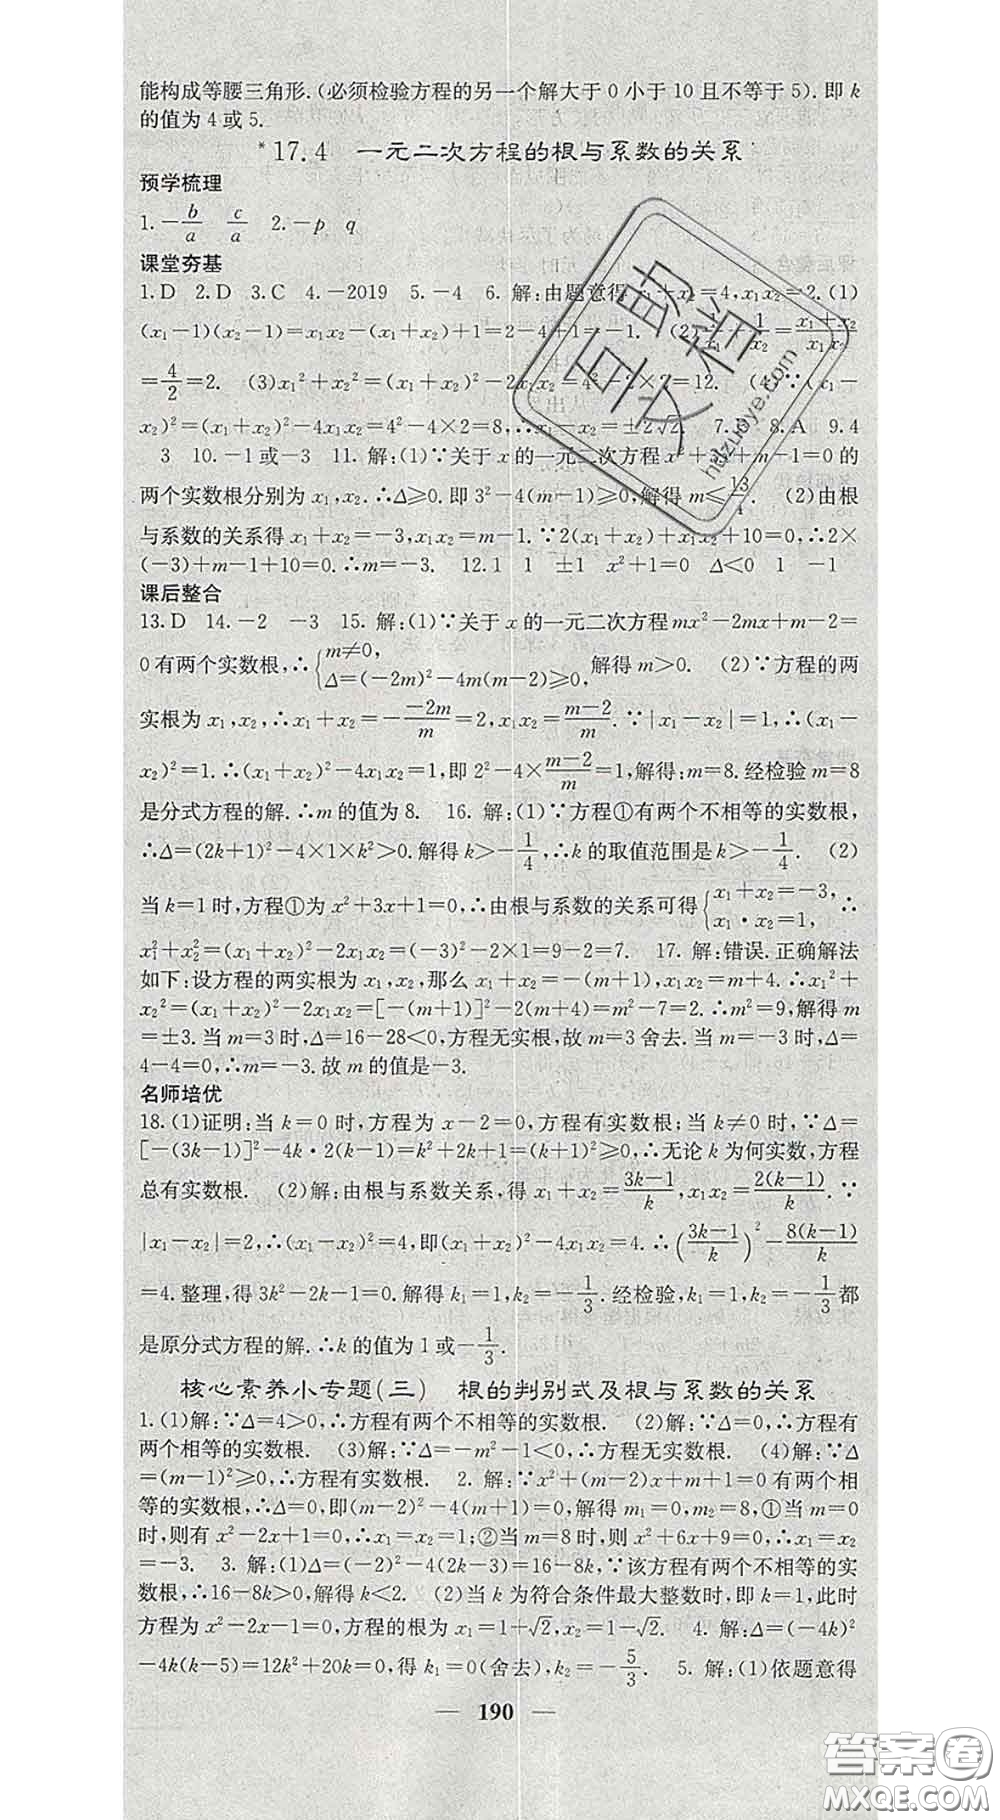 能构成等腰三角形.(必须检验方程的另一个解大于0小于10且不等于5).即k
的值为4或5.
*17.4 一元二次方程的根与系数的关系
预学梳理
1.-b/a c/a 2.-p q
课堂夯基
1.D 2.D 3.C 4.-2019 5.-4 6.解:由题意得x₁+x₂=4,x₁x₂=2.(1)
(x₁-1)(x₂-1)=x₁x₂-(x₁+x₂)+1=2-4+1=-1. (2)1/x₁+1/x₂=(x₁+x₂)/(x₁x₂)
=4/2=2. (3)x₁²+x₂²=(x₁+x₂)²-2x₁x₂=4²-2×2=12. (4)∵(x₁-
x₂)²=(x₁+x₂)²-4x₁x₂=4²-4×2=8,∴x₁-x₂=±2√2. 7. 8.A 9.4
3 10.-1或-3 11.解:(1)∵关于x的一元二次方程x²+3x+m-1=0的
两个实数根分别为x₁,x₂.∴Δ≥0.即3²-4(m-1)≥0,解得m≤13/4. (2)由根
与系数的关系得x₁+x₂=-3,x₁x₂=m-1.∵2(x₁+x₂)+x₁x₂+10=0,∴2×
(-3)+m-1+10=0.∴m=-3. 12.1 1 ±1 x²+1=0 Δ<0 1 -1
课后整合
13.D 14.-2 -3 15.解:(1)∵关于x的一元二次方程mx²-2mx+m-2=
0有两个实数根,∴{m≠0, Δ=(-2m)²-4m(m-2)≥0, 解得m>0. (2)∵方程的两
实根为x₁,x₂,∴x₁+x₂=-(-2m)/m=2,x₁x₂=(m-2)/m.∵|x₁-x₂|=1,∴(x₁-
x₂)²=1.∴(x₁+x₂)²-4x₁x₂=1,即2²-4×(m-2)/m=1,解得:m=8.经检验m=8
是分式方程的解.∴m的值为8. 16.解:(1)∵方程①有两个不相等的实数根,
∴Δ=(2k+1)²-4×1×k²>0.解得k>-1/4,∴k的取值范围是k>-1/4. (2)
当k=1时,方程①为x²+3x+1=0,∴由根与系数的关系可得{x₁+x₂=-3, x₁·x₂=1, ∴
x₁²+x₂²=(x₁+x₂)²-2x₁x₂=(-3)²-2×1=9-2=7. 17.解:错误.正确解法
如下:设方程的两实根为x₁,x₂,那么x₁+x₂=-(m+1),x₁x₂=m+4.∴x₁²+
x₂²=(x₁+x₂)²-2x₁x₂=[-(m+1)]²-2(m+4)=m²-7=2.∴m²=9,解得m
=±3.当m=3时,Δ=16-28<0,方程无实根,故m=3舍去.当m=-3时,Δ=
4-4=0,∴m=-3.故m的值是-3.
名师培优
18.(1)证明:当k=0时,方程为x-2=0,方程有实数根;当k≠0时,∵Δ=
[-(3k-1)]²-4k·2(k-1)=k²+2k+1=(k+1)²≥0,∴无论k为何实数,方程
总有实数根. (2)解:由根与系数关系,得x₁+x₂=(3k-1)/k,x₁x₂=2(k-1)/k.∵
|x₁-x₂|=2,∴(x₁-x₂)²=4,即(x₁+x₂)²-4x₁x₂=4.∴((3k-1)/k)²-8(k-1)/k
=4.整理,得3k²-2k-1=0.解得k₁=1,k₂=-1/3.经检验,k₁=1,k₂=-1/3都
是原分式方程的解.∴k的值为1或-1/3.
核心素养小专题(三) 根的判别式及根与系数的关系
1.(1)解:∵Δ=4>0,∴方程有两个不相等的实数根. (2)解:∵Δ=0,∴方程有
两个相等的实数根. (3)解:∵Δ=-m²-1<0,∴方程无实数根. (4)解:∵Δ
=(m-1)²≥0,∴方程有实数根. 2.解:∵x²+(m-2)x+m+1=0有两个相
等的实数根,∴Δ=0,即(m-2)²-4(m+1)=0,解得m₁=0,m₂=8,①当m=0
时,则有x²-2x+1=0,∴x₁=x₂=1;②当m=8时,则x²+6x+9=0,∴x₁=x₂
=-3. 3.解:(1)Δ=(-2)²-4(2k-3)=16-8k,∵该方程有两个不相等的实
数根,∴16-8k>0,解得k<2. (2)当k为符合条件最大整数时,即k=1,此时
方程为x²-2x-1=0,方程的根为x₁=1+√2,x₂=1-√2. 4.解:Δ=(-4k)²
-4k(k-5)=12k²+20k=0,得k₁=0(舍去),k₂=-5/3. 5.解:(1)依题意得
— 190 —
互助
文档
huzuoye.com
答案圈
MXQE.COM